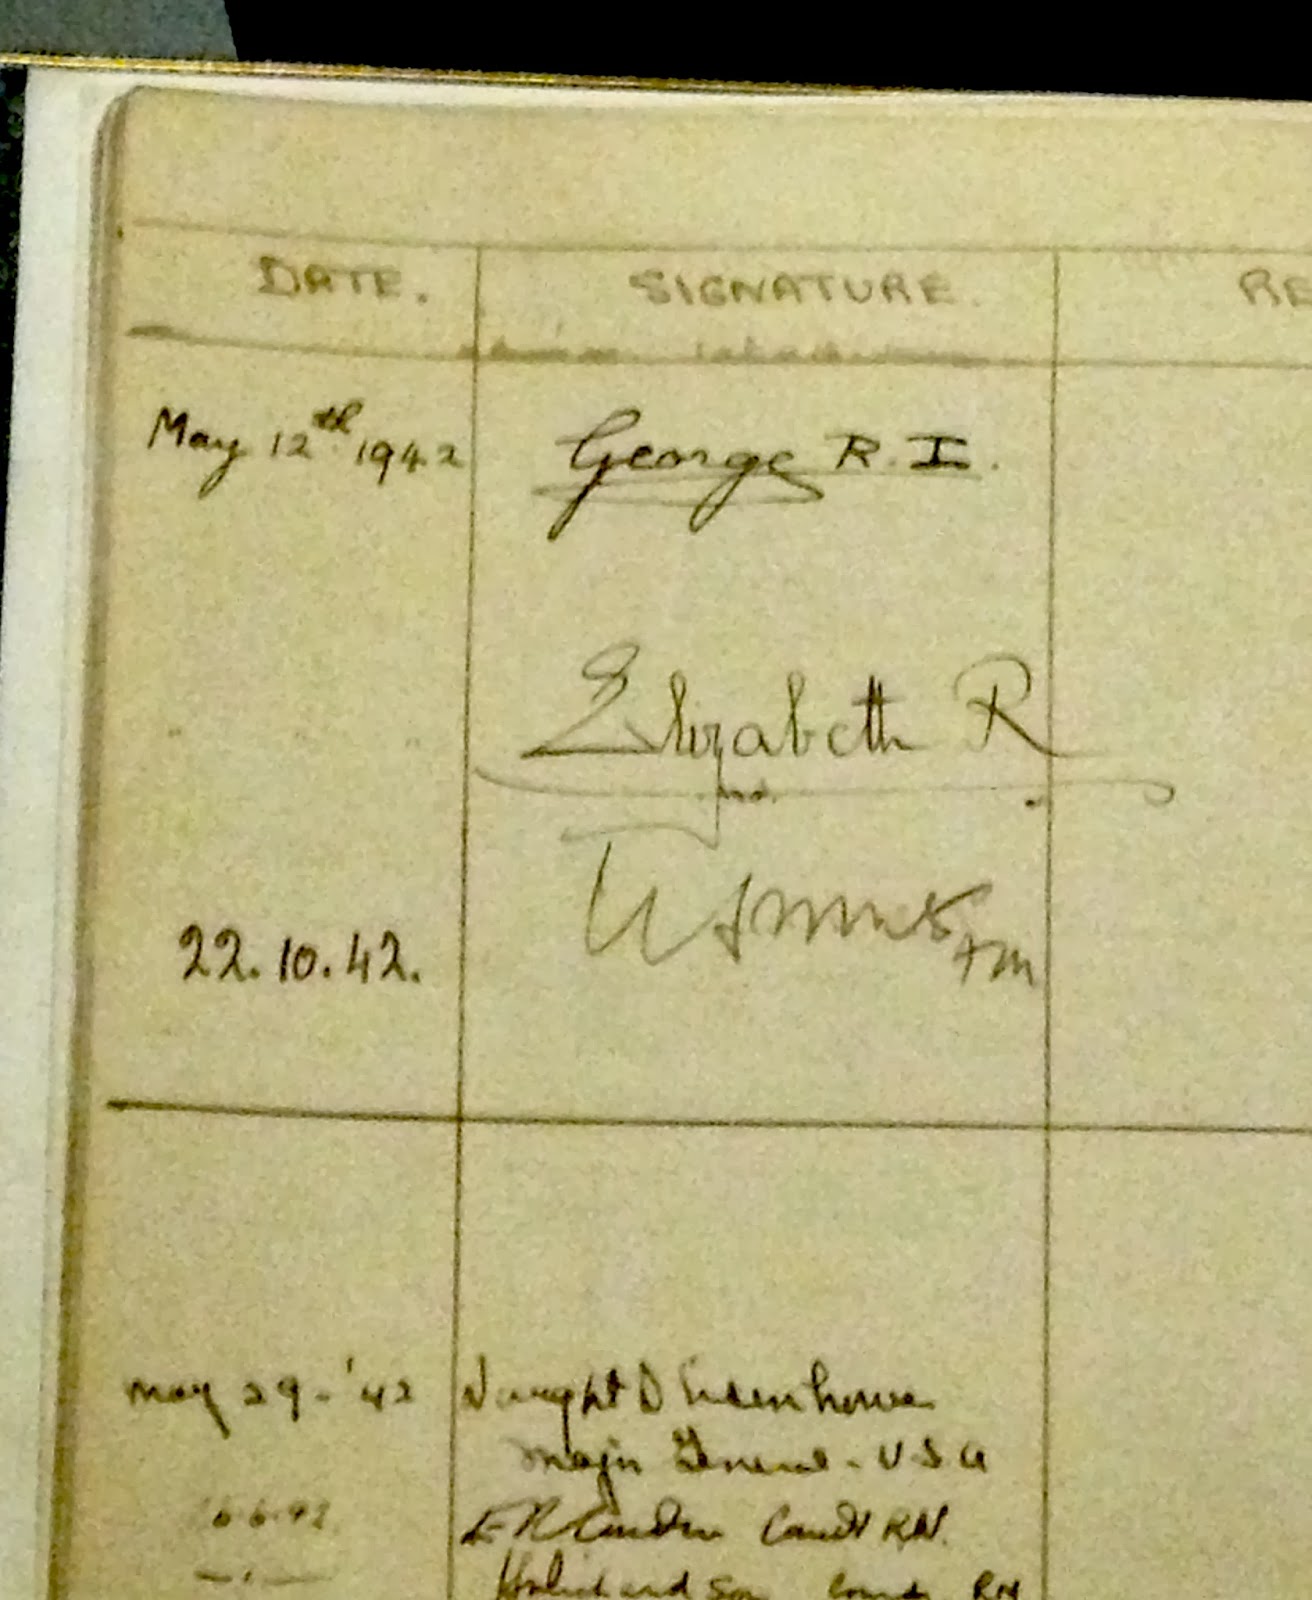 DATE. SIGNATURE. RE
May 12th 1942 George R. I.
Elizabeth R
22.10.42.
May 29-'42 Dwight D Eisenhower
Major General - U S A
6.6.42 Comdr RN.
RN